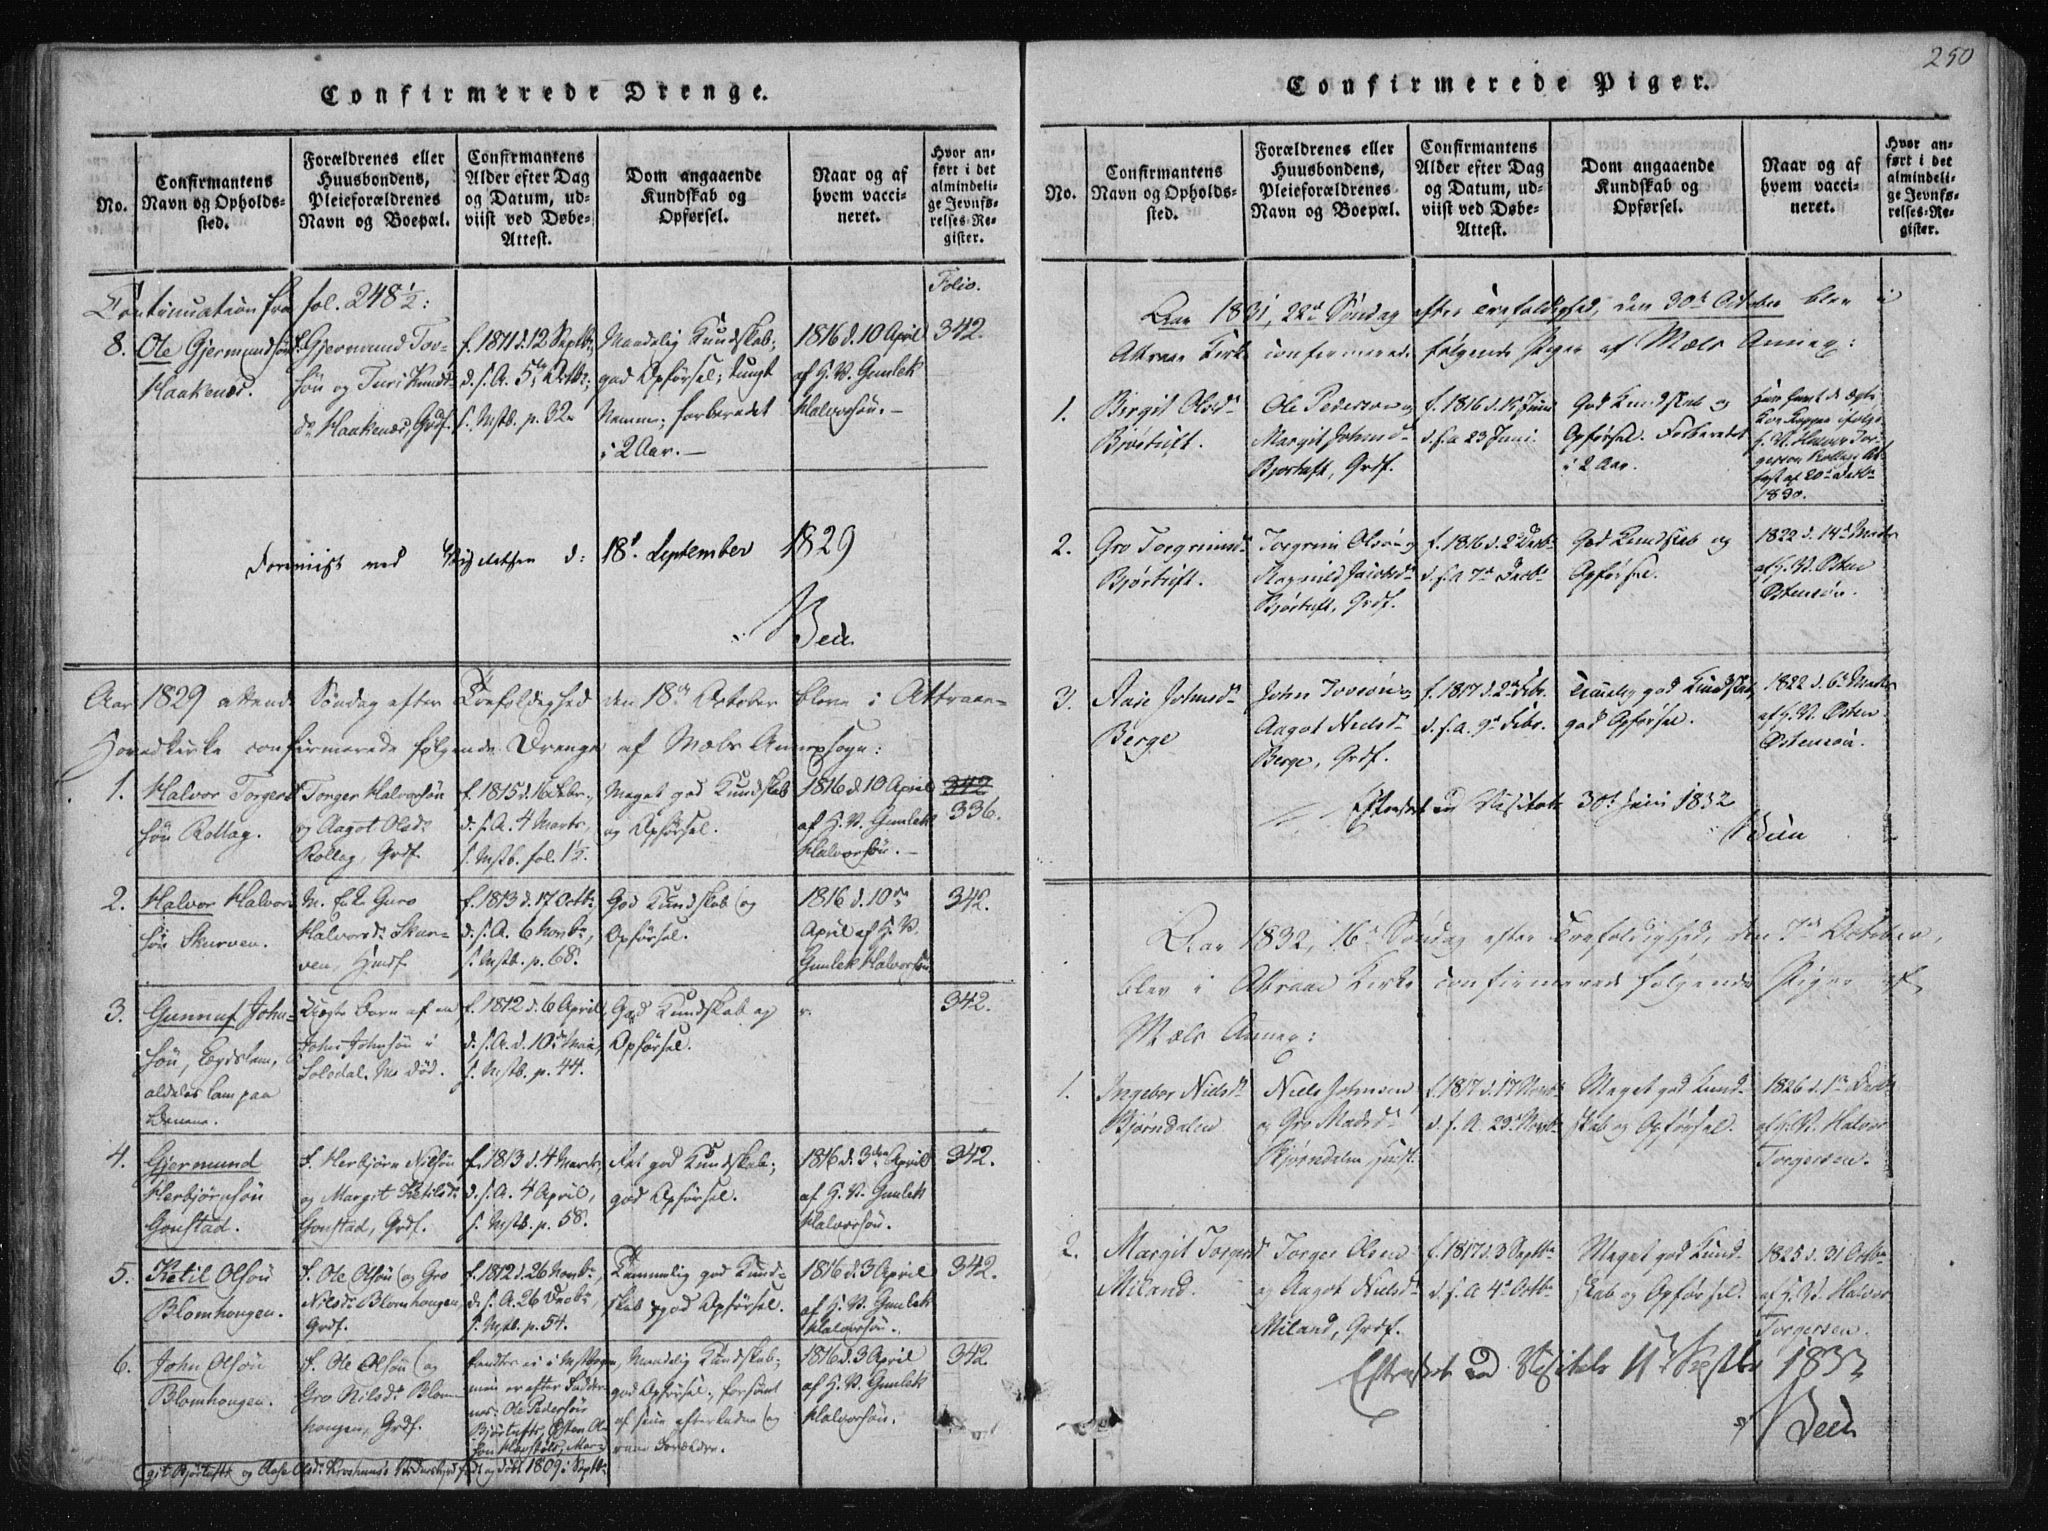 Confirmerede Drenge.
No.
Confirmantens
Navn og Opholds-
sted.
Forældrenes eller
Huusbondens,
Pleieforældrenes
Navn og Boepæl.
Confirmantens
Alder efter Dag
og Datum, ud-
viist ved Døbe-
Attest.
Dom angaaende
Kundskab og
Opførsel.
Naar og af
hvem vacci-
neret.
Hvor an-
ført i det
almindeli-
ge Jevnfø-
relses-Re-
gister.
Folio.
Continuation fra fol. 248½:
8.
Ole Gjermundsøn
Haakenæs.
Gjermund Tov-
søn og Turi Knuds-
dr Haakenæs, Grdf.
f. 1811 d. 12 Septbr,
d. s. A. 5te Octbr,
s. Mstb. p. 32.
Maadelig Kundskab;
god Opførsel; tungt
Nemme; forberedet
i 2 Aar.
1816 d. 10 April
af H. V. Gunlek
Halvorsøn.
342.
ved Visitatsen d: 18d September 1829
Aar 1829 attende Søndag efter Trefoldighed den 18de October bleve i Attraae-
Hovedkirke confirmerede følgende Drenge af Mæls Annexsogn:
1.
Halvor Torger-
søn Rollag.
Torger Halvorsøn
og Aagot Olsdr
Rollag, Grdf.
f. 1815 d. 16 Febr.,
d. s. A. 4 Marts,
s. Mstb. fol. 1½.
Meget god Kundskab
og Opførsel.
1816 d. 10 April
af H. V. Gunlek
Halvorsøn.
342
336.
2.
Halvor Halvor-
søn Skurven.
M. Enke Guro
Halvorsdr Skur-
ven, Huusf.
f. 1813 d. 17 Octbr
d. s. A. 6 Novbr,
s. Mstb. p. 68.
God Kundskab og
Opførsel.
1816 d. 10de
April af H. V.
Gunlek Halvorsøn
342.
3.
Gunnuf John-
søn, Lægdslem,
aldeles lam paa
Benene.
Uægte Barn af en
John Johnsøn i
Solodal. M. død.
f. 1812 d. 6 April,
d. s. A. d. 10de Mai,
s. Mstb. p. 44.
God Kundskab og
Opførsel.
342.
4.
Gjermund
Herbjørnsøn
Gonstad.
F. Herbjørn Nilsøn
og Margit Ketilsdr
Gonstad, Grdf.
f. 1813 d. 4 Marts,
d. s. A. 4 April,
s. Mstb. p. 58.
Ret god Kundskab;
god Opførsel.
1816 d. 3die April
af H. V. Gunlek
Halvorsøn.
342.
5.
Ketil Olsøn
Blomhougen.
F. Ole Olsøn og Gro
Nilsdr Blomhougen,
Grdf.
f. 1812 d. 26 Novbr,
d. s. A. 26 Decbr,
s. Mstb. p. 54.
Temmelig god Kund-
skab og god Opførsel.
1816 d. 3 April
af H. V. Gunlek
Halvorsøn.
342.
6.
John Olsøn
Blomhougen.
F. Ole Olsøn og
Gro Nilsdr Blom-
hougen, Grdf.
findes ei i Mstbogen,
men er efter Fadder-
nes: Ole Pedersøn
Bjørtufts, Østen Ol-
søn
Mar-
git Bjørtufts og Aase Olsdr
født og døbt 1809 i Septbr
Maadelig Kundskab;
god Opførsel; forsømt
af sine efterladne og
raae Forældre.
1816 d. 3 April
af H. V. Gunlek
Halvorsøn.
342
250
Confirmerede Piger.
No.
Confirmantens
Navn og Opholds-
sted.
Forældrenes eller
Huusbondens,
Pleieforældrenes
Navn og Boepæl.
Confirmantens
Alder efter Dag
og Datum, ud-
viist ved Døbe-
Attest.
Dom angaaende
Kundskab og
Opførsel.
Naar og af
hvem vacci-
neret.
Hvor an-
ført i det
almindeli-
ge Jevnfø-
relses-Re-
gister.
Aar 1831, 22de Søndag efter Trefoldighed, den 30te October blev i
Attraae Kirke confirmerede følgende Piger af Mæls Annex:
1.
Birgit Olsdr
Bjørtuft.
Ole Pedersen og
Margit Johnsdr
Bjørtuft, Grdf.
f. 1816 d. 15 Juni
d. s. A. 23 Juni.
God Kundskab og
Opførsel. Forberedet
i 2 Aar.
Har havt de ægte
Kokopper ifølge
H. V. Halvor Tor-
gersen Rollags At-
test af 20de Decbr
1830.
2.
Gro Torgrimsdr
Bjørtuft.
Torgrim Olsøn og
Ragnild Jacobsdr
Bjørtuft, Grdf.
f. 1816 d. 2 Decbr
d. s. A 7de Decbr
God Kundskab og
Opførsel.
1822 d. 14de Marts
af H. V. Østen
Østensøn.
3.
Aase Johnsdr
Berge
John Tovsøn og
Aagot Nielsdr
Berge, Grdf.
f. 1817 d. 2de Febr.
d. s. A. 9de Febr.
Temelig god Kundskab,
god Opførsel.
1822 d. 6te Marts
af H. V. Østen
Østensøn.
Efterseet ved Visitats 30te Juni 1832
Aar 1832, 16de Søndag efter Trefoldighed, den 7de October,
blev i Attraae Kirke confirmerede følgende Piger af
Mæls Annex:
1.
Ingebor Nielsdr
Bjørndalen
Niels Johnsen
og Gro Madsdr
Bjørndalen Huusf.
f. 1817 d. 17 Novbr
d. s. A. 29de Novbr
Meget god Kund-
skab og Opførsel.
1826 d. 1ste Decbr
af H. V. Halvor
Torgersen.
2.
Margit Torgersd
Miland.
Torger Olsen
og Aagot Nielsdr
Miland, Grdf.
f. 1817 d. 3 Septbr
d. s. A 4de Octbr
Meget god Kund-
skab og Opførsel.
1825 d. 31 Octbr
af H. V. Halvor
Torgersen.
Efterseet ved Visitats 11te Septbr 1833